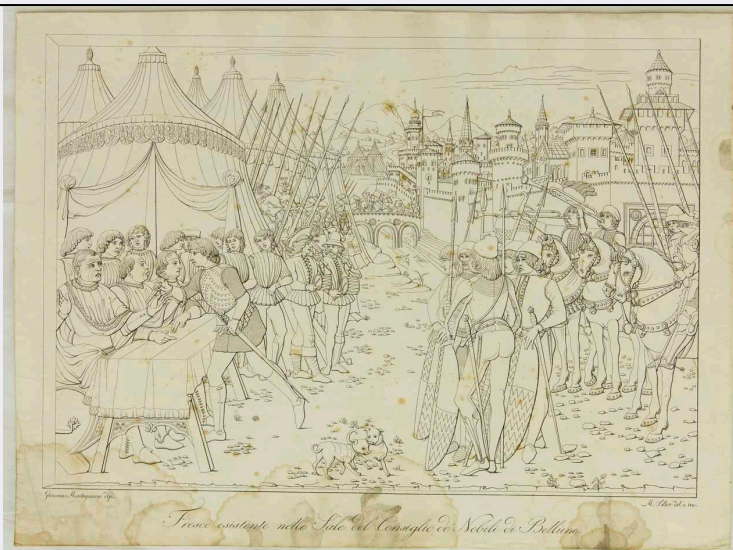 Giacomo Montagnana dip.
M. Toller del. e inc.
Fresco esistente nelle Sale del Consiglio de Nobili di Belluno